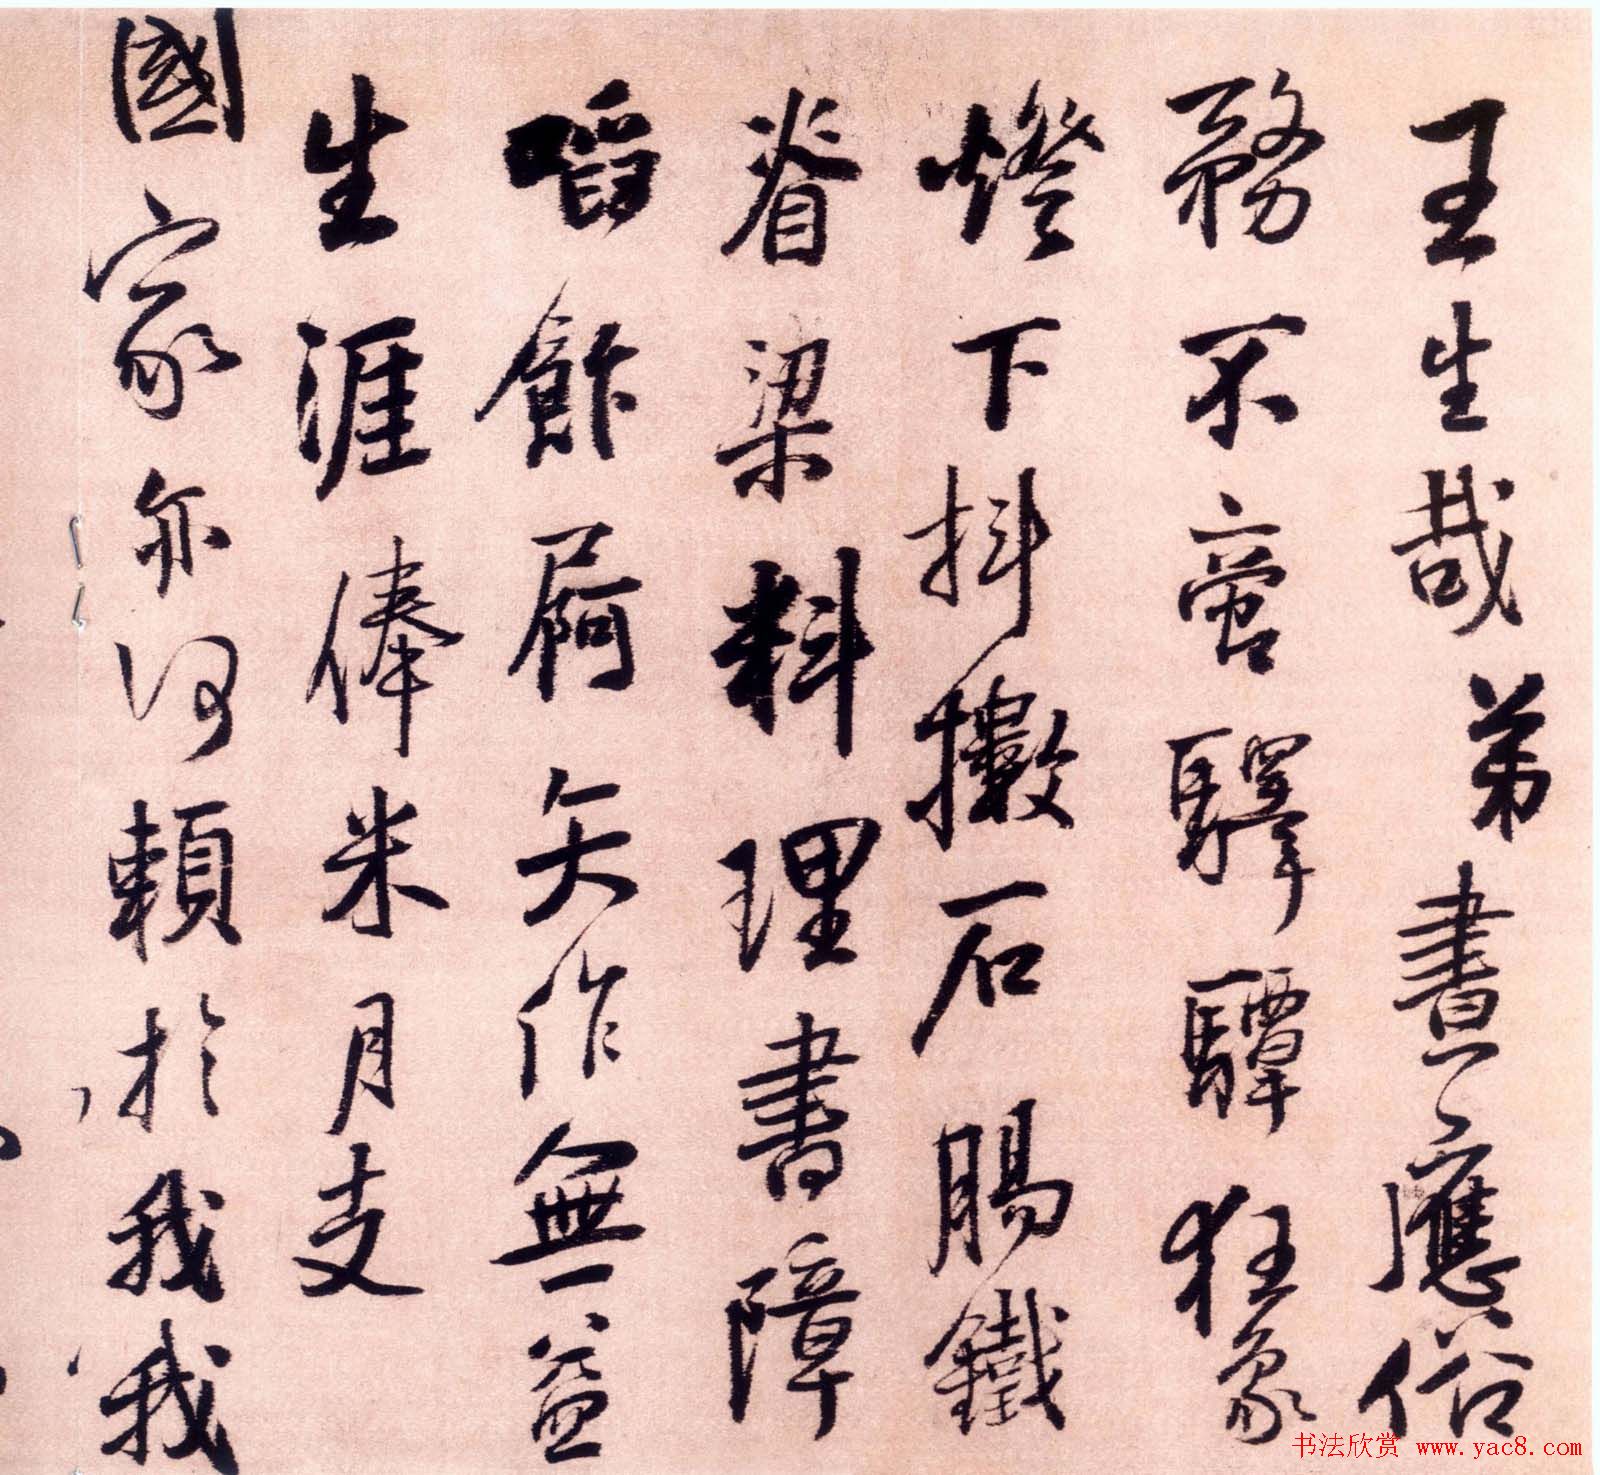 王生哉弟晝應俗
務不啻驛驔狂象
燈下抖擻石腸鐵
脊梁料理書障
啗飵屙矢作無益
生涯俸米月支
國家亦何賴於我我
书法欣赏 www.yac8.com